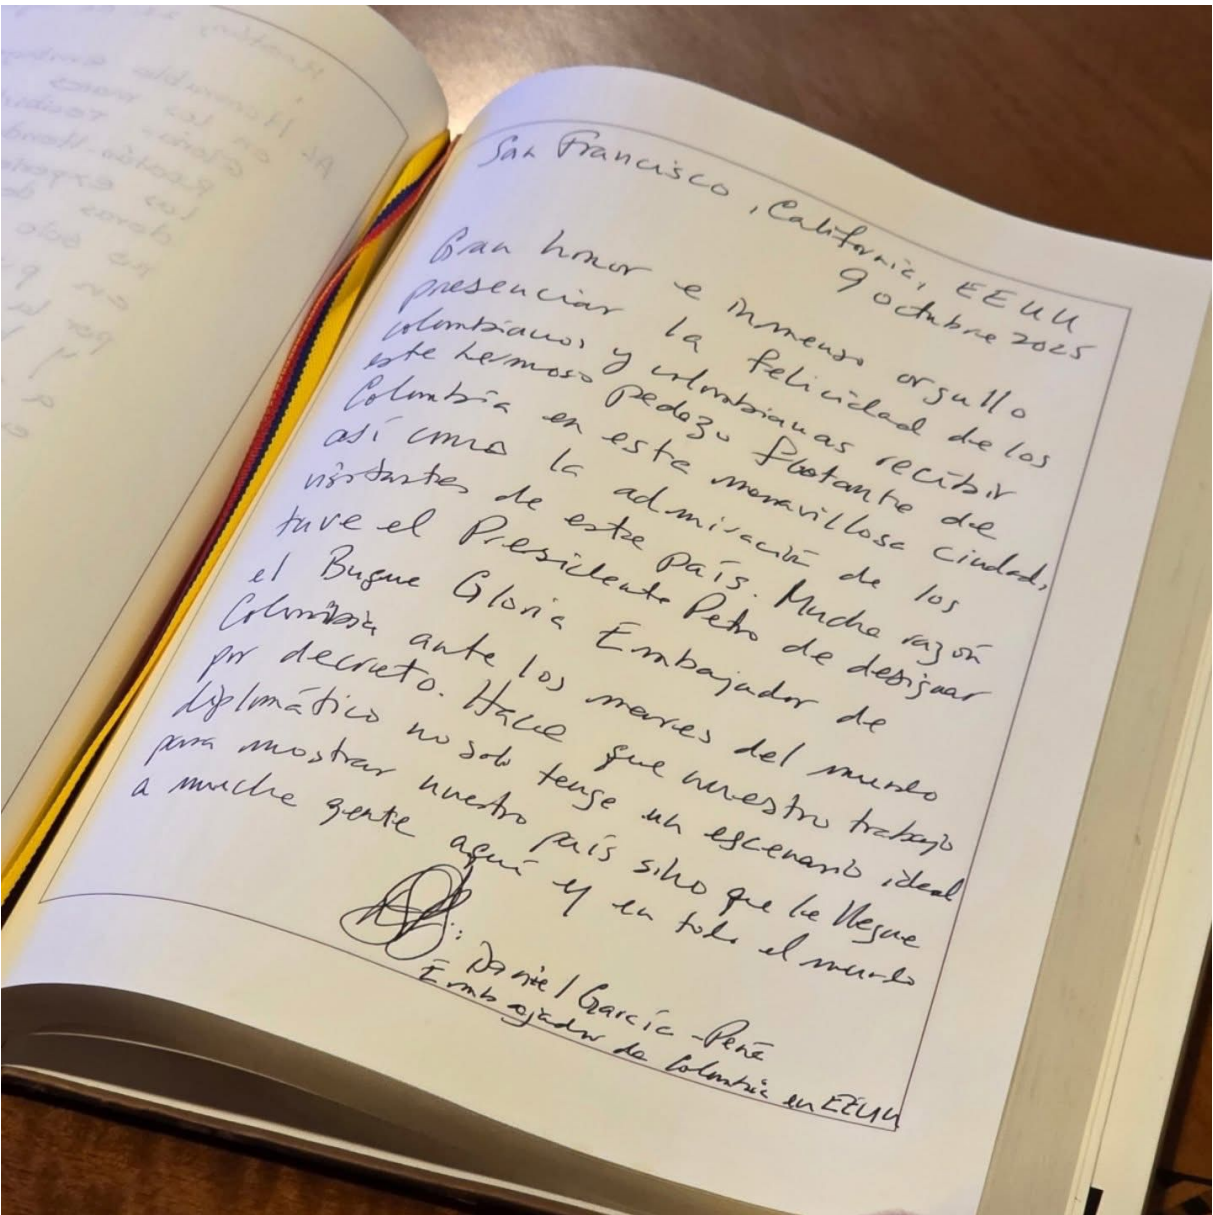 San Francisco, California, EEUU
9 octubre 2025
Gran honor e inmenso orgullo
presenciar la felicidad de los
colombianos y colombianas recibir
este hermoso pedazo flotante de
Colombia en este maravillosa ciudad,
así como la admiración de los
visitantes de este país. Mucha razón
tuve el Presidente Petro de designar
el Buque Gloria Embajador de
Colombia ante los mares del mundo
por decreto. Hace que nuestro trabajo
diplomático no solo tenga un escenario ideal
para mostrar nuestro país sino que le llegue
a mucha gente aquí y en todo el mundo
Daniel García-Peña
Embajador de Colombia en EEUU